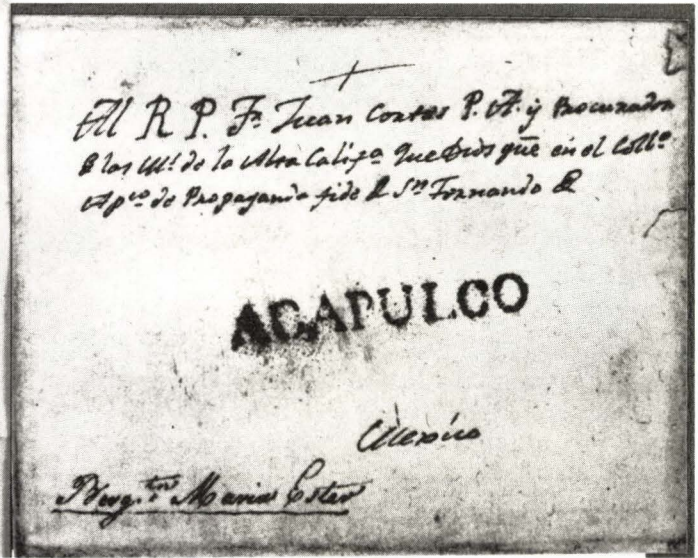 Al R P. Fr. Juan Cortes P. A. y Procurador
de las Ms. de la Alta Califa. que Dios gue en el Collo.
Apco. de Propaganda fide de Sn Fernando de
ACAPULCO
Mexico
Bergtn Maria Ester